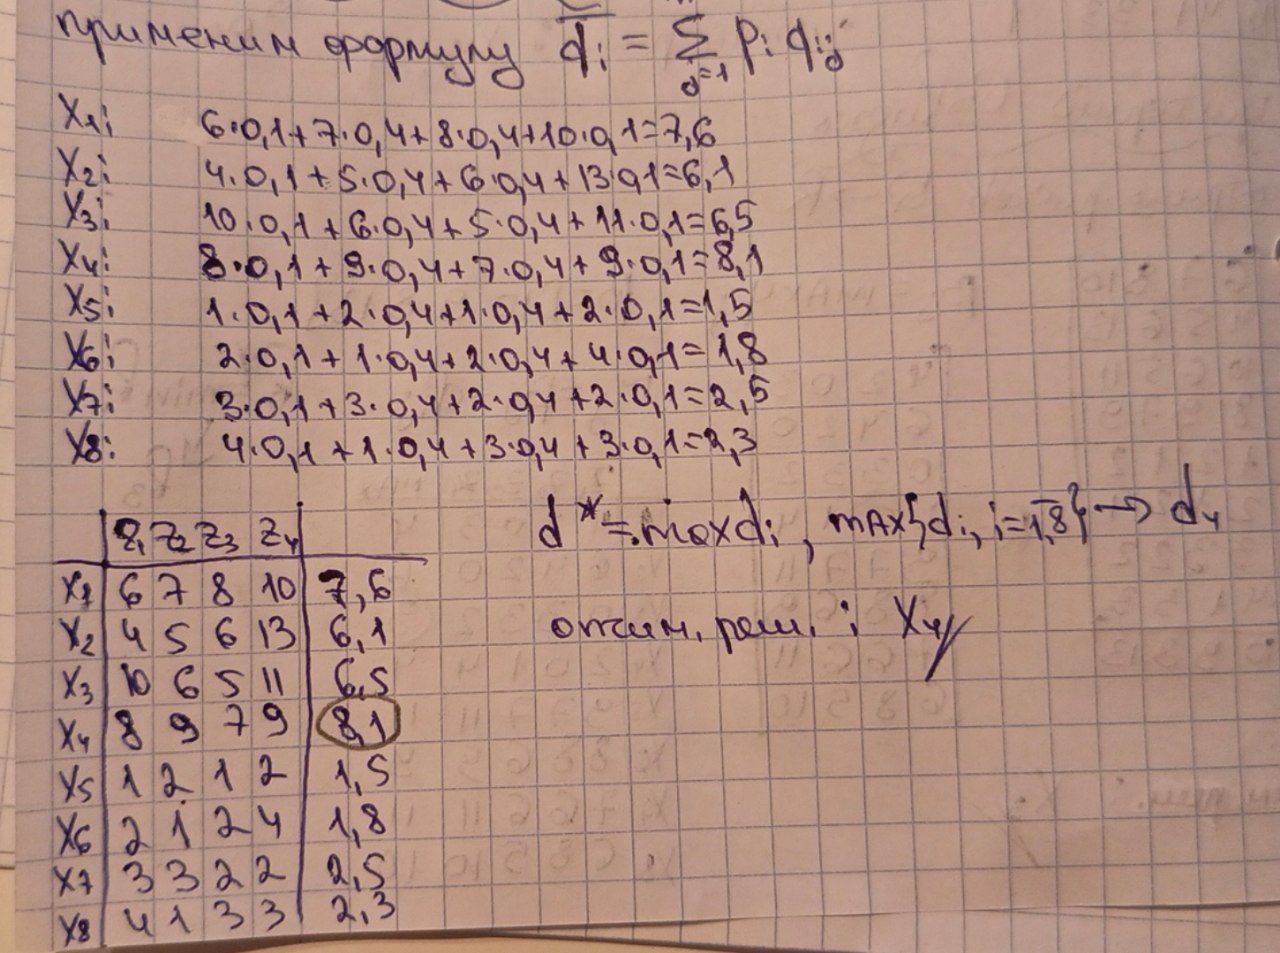 применим формулу d̄ᵢ = Σ pᵢ dᵢⱼ
j=1
X₁: 6·0,1+7·0,4+8·0,4+10·0,1=7,6
X₂: 4·0,1+5·0,4+6·0,4+13·0,1=6,1
X₃: 10·0,1+6·0,4+5·0,4+11·0,1=6,5
X₄: 8·0,1+9·0,4+7·0,4+9·0,1=8,1
X₅: 1·0,1+2·0,4+1·0,4+2·0,1=1,5
X₆: 2·0,1+1·0,4+2·0,4+4·0,1=1,8
X₇: 3·0,1+3·0,4+2·0,4+2·0,1=2,5
X₈: 4·0,1+1·0,4+3·0,4+3·0,1=2,3
d*=maxdᵢ, max{dᵢ, i=1,8} → d₄
оптим. реш.: X₄
Z₁ Z₂ Z₃ Z₄
X₁ 6 7 8 10 7,6
X₂ 4 5 6 13 6,1
X₃ 10 6 5 11 6,5
X₄ 8 9 7 9 8,1
X₅ 1 2 1 2 1,5
X₆ 2 1 2 4 1,8
X₇ 3 3 2 2 2,5
X₈ 4 1 3 3 2,3